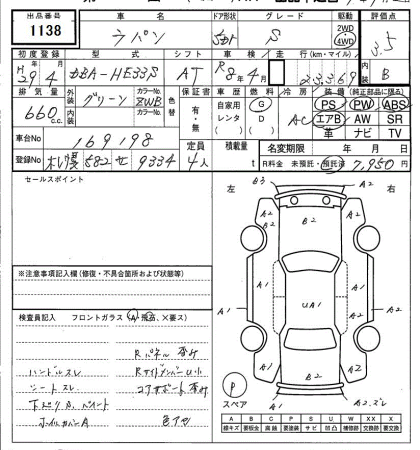 出品番号 車名 ドア形状 グレード 駆動 評価点
1138 ラパン 5D S 2WD 4WD 3.5
初度登録 型式 シフト 車検 走行(km・マイル) 内装
H29年4月 DBA-HE33S AT R8年4月 B
排気量 外装 カラーNo. 色替 保証書 車歴 燃料 冷房 装備(純正部品に限る)
660c.c. グリーン ZWB 有・無 自家用 レンタ G D AC PS PW ABS
内装 カラーNo. エアB AW SR
革 ナビ TV
車台No 169198 定員 4人 積載量 t 名変期限 年 月 日
登録No 札幌 582 せ 9334 R料金 未預託・預託済 7,950円
セールスポイント
左 右
B3 A2 A2
A2 B2 A2
A1 A2
A1 UA1 A1
A1 A2
B2
A1 A2.ズレ
P
スペア
※注意事項記入欄(修復・不具合箇所および状態等)
検査員記入 フロントガラス(A、飛石、×要ス)
Rパネル
ハンドルスレ RサイドメンバーU小
シートスレ コアサポート
下廻りサ、ペイント
ホイルカバーA 色アセ
A B C P S U W X XX
線キズ 要板金 腐蝕 要塗装 サビ 凹凸 補修跡 交換跡 要交換